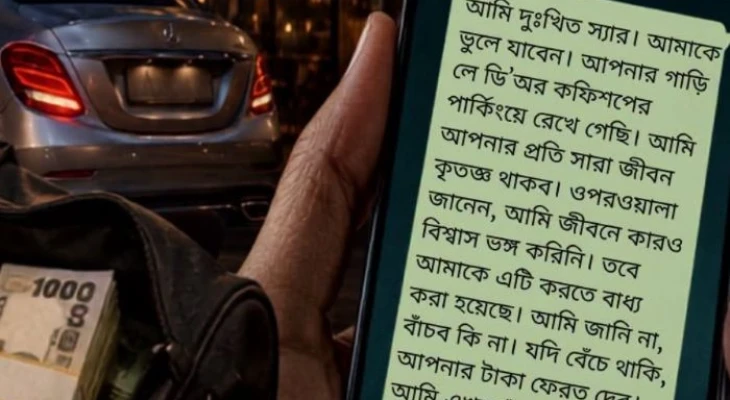 আমি দুঃখিত স্যার। আমাকে
ভুলে যাবেন। আপনার গাড়ি
লে ডি'অর কফিশপের
পার্কিংয়ে রেখে গেছি। আমি
আপনার প্রতি সারা জীবন
কৃতজ্ঞ থাকব। ওপরওয়ালা
জানেন, আমি জীবনে কারও
বিশ্বাস ভঙ্গ করিনি। তবে
আমাকে এটি করতে বাধ্য
করা হয়েছে। আমি জানি না,
বাঁচব কি না। যদি বেঁচে থাকি,
আপনার টাকা ফেরত দেব।
আমি
1000